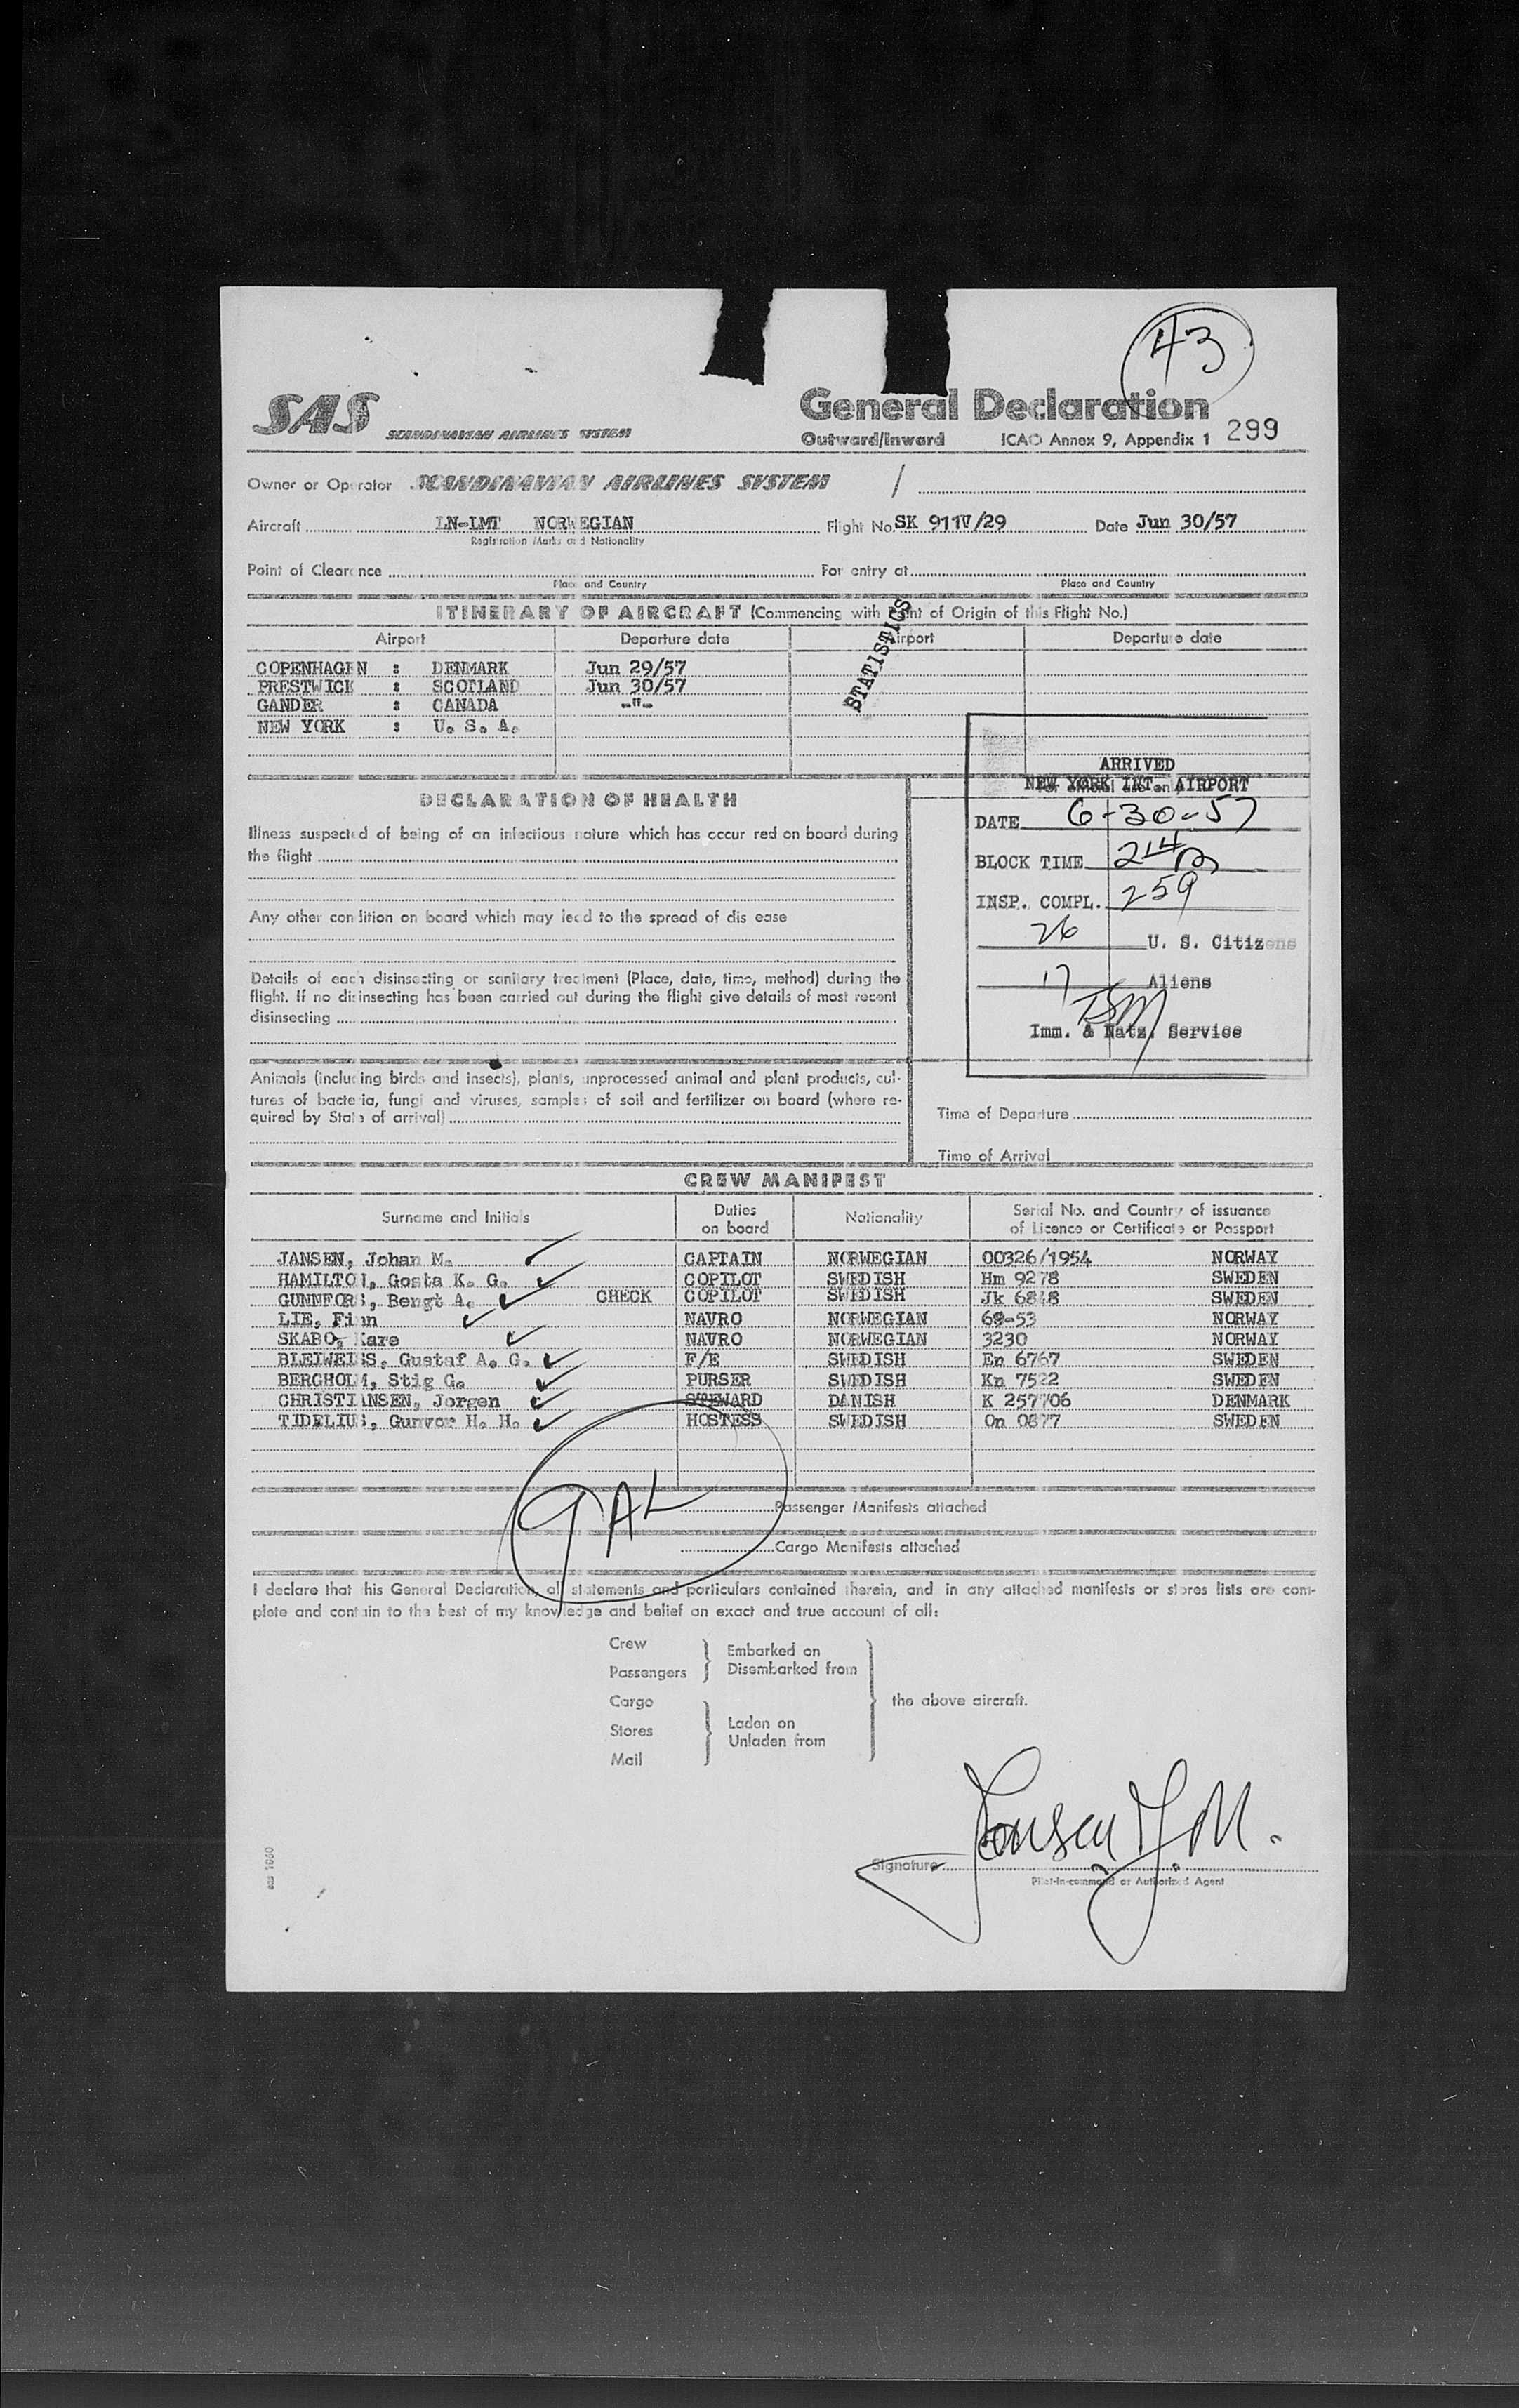 43
SAS SCANDINAVIAN AIRLINES SYSTEM
General Declaration
Outward/Inward ICAO Annex 9, Appendix 1 299
Owner or Operator SCANDINAVIAN AIRLINES SYSTEM /
Aircraft LN-LMT NORWEGIAN Flight No. SK 911V/29 Date Jun 30/57
Registration Marks and Nationality
Point of Clearance For entry at
Place and Country Place and Country
ITINERARY OF AIRCRAFT (Commencing with Point of Origin of this Flight No.)
Airport Departure date Airport Departure date
STATISTICS
COPENHAGEN : DENMARK Jun 29/57
PRESTWICK : SCOTLAND Jun 30/57
GANDER : CANADA -"-
NEW YORK : U. S. A.
DECLARATION OF HEALTH
Illness suspected of being of an infectious nature which has occurred on board during
the flight
Any other condition on board which may lead to the spread of disease
Details of each disinsecting or sanitary treatment (Place, date, time, method) during the
flight. If no disinsecting has been carried out during the flight give details of most recent
disinsecting
Animals (including birds and insects), plants, unprocessed animal and plant products, cul-
tures of bacteria, fungi and viruses, samples of soil and fertilizer on board (where re-
quired by State of arrival)
For official use only
ARRIVED
NEW YORK INT. AIRPORT
DATE 6-30-57
BLOCK TIME 214
INSP. COMPL. 259
26 U. S. Citizens
17 Aliens
Imm. & Natz. Service
Time of Departure
Time of Arrival
CREW MANIFEST
Surname and Initials Duties on board Nationality Serial No. and Country of issuance of Licence or Certificate or Passport
JANSEN, Johan M. CAPTAIN NORWEGIAN 00326/1954 NORWAY
HAMILTON, Gosta K. G. COPILOT SWEDISH Hm 9278 SWEDEN
GUNNFORS, Bengt A. CHECK COPILOT SWEDISH Jk 6848 SWEDEN
LIE, Finn NAVRO NORWEGIAN 68-53 NORWAY
SKABO, Kare NAVRO NORWEGIAN 3230 NORWAY
BLEIWEISS, Gustaf A. G. F/E SWEDISH En 6767 SWEDEN
BERGHOLM, Stig G. PURSER SWEDISH Kn 7522 SWEDEN
CHRISTIANSEN, Jorgen STEWARD DANISH K 257706 DENMARK
TIDELIUS, Gunvor H. H. HOSTESS SWEDISH On 0877 SWEDEN
GAL
Passenger Manifests attached
Cargo Manifests attached
I declare that this General Declaration, all statements and particulars contained therein, and in any attached manifests or stores lists are com-
plete and contain to the best of my knowledge and belief an exact and true account of all:
Crew
Passengers
Embarked on
Disembarked from
Cargo
Stores
Mail
Laden on
Unladen from
the above aircraft.
Jansen J. M.
Signature
Pilot-in-command or Authorized Agent